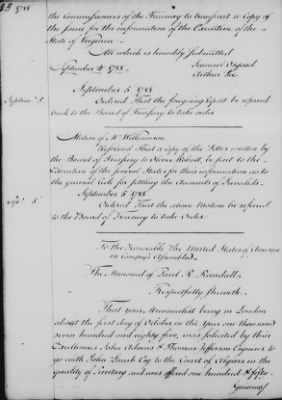 1788
the Commissioners of the Treasury to transmit a Copy of
the same for the information of the Executive of the
State of Virginia
All which is humbly Submitted
September 4. 1788.
Samuel Osgood
Arthur Lee
September 5. 1788
Septem 5
Ordered That the foregoing report be referred
back to the Board of Treasury to take order
Motion of Mr Williamson
Resolved That a Copy of the Letter written by
the Board of Treasury to be put to the
Executive of the several States for their information as to
the general Rule for settling the Accounts of
September 5. 1788
Sept 5.
Ordered That the above Motion be referred
to the Board of Treasury to take Order
To the Honourable The United States of America
in Congress Assembled
The Memorial of Paul R. Randall
Respectfully Sheweth
That your Memorialist being in London
about the first day of October in the Year one thousand
seven hundred and eighty five, was solicited by their
Excellencies John Adams & Thomas Jefferson Esquires to
go with John Lamb Esq to the Court of Algiers in the
quality of Secretary and was offered one hundred & fifty
Guineas